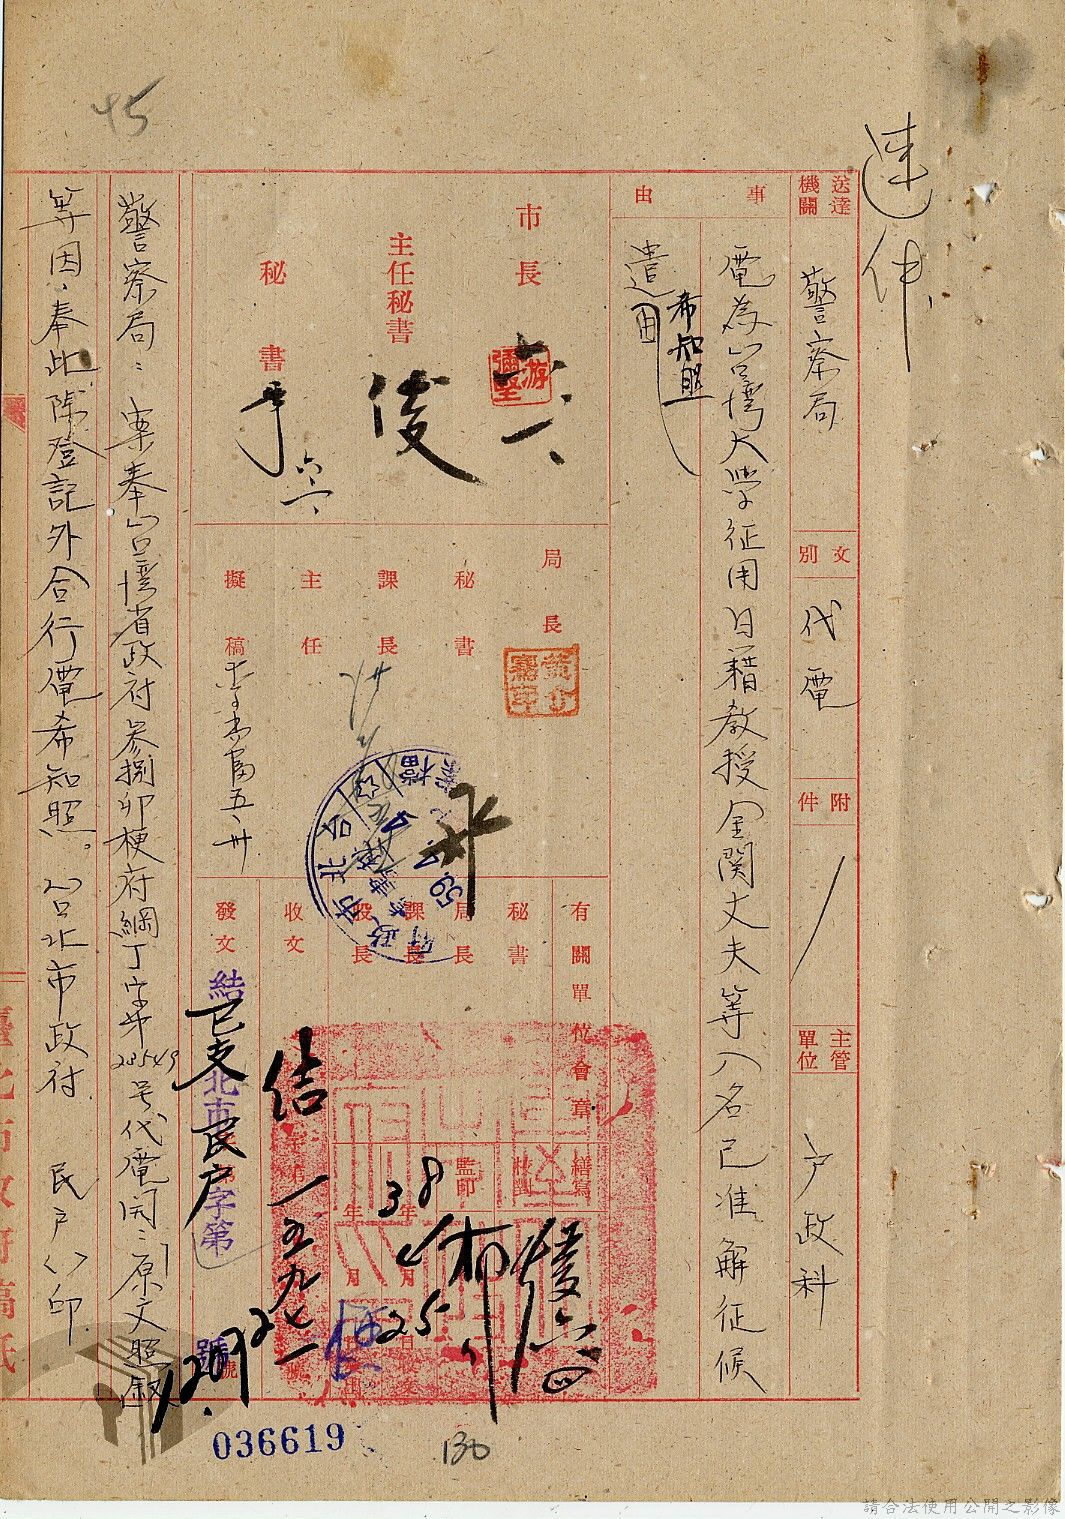 速件
送達機關
警察局
文別
代電
附件
主管單位
户政科
事由
電為台灣大学征用日籍教授金関丈夫等入名已准解征候
遣由
希知照
市長
游彌堅
六、一、
主任秘書
秘書
六、一、
局長
秘書
課長
主任
擬稿
五、卅
有關單位會章
秘書
局長
課長
股長
收文
發文
繕寫
校對
監印
38年
4月
25
結
字第
一五九七一
號
已支
民户
北市
字第
12092
號
036619
130
警察局：案奉台灣省政府參捌卯梗府綱丁字第20549号代電開：原文照敘
等因、奉此除登記外合行電希知照。台北市政府 民户 印
45
台北市政府
59.4.4
請合法使用公開之影像